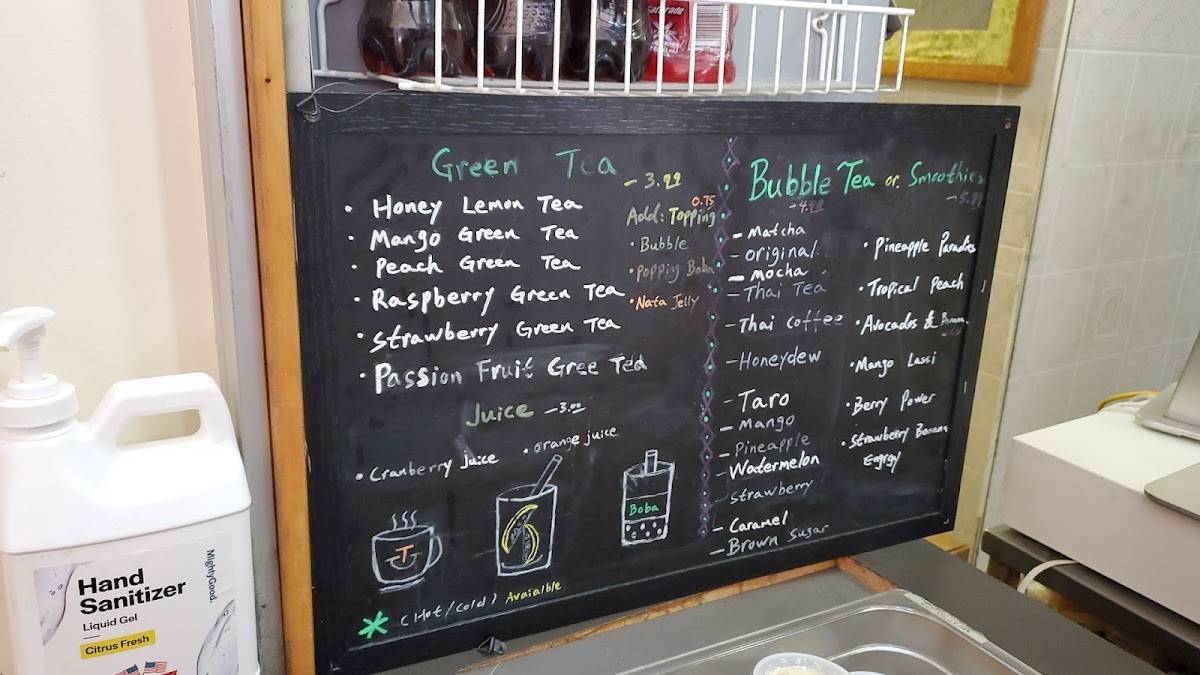 Green Tea
- 3.99
• Honey Lemon Tea
• Mango Green Tea
• Peach Green Tea
• Raspberry Green Tea
• Strawberry Green Tea
• Passion Fruit Gree Tea
0.75
Add: Topping
• Bubble
• Popping Boba
• Nata Jelly
Juice - 3.00
• Cranberry Juice
• orange juice
T
Boba
* (Hot/Cold) Avaialble
Bubble Tea or Smoothies
- 4.99
- 5.99
- Matcha
- original
- Mocha
- Thai Tea
- Thai coffee
- Honeydew
- Taro
- Mango
- Pineapple
- Watermelon
- Strawberry
- Caramel
- Brown sugar
• Pineapple Paradies
• Tropical Peach
• Avocados & Banana
• Mango Lassi
• Berry Power
• Strawberry Banana
Engrgy
Hand
Sanitizer
Liquid Gel
Citrus Fresh
MightyGood